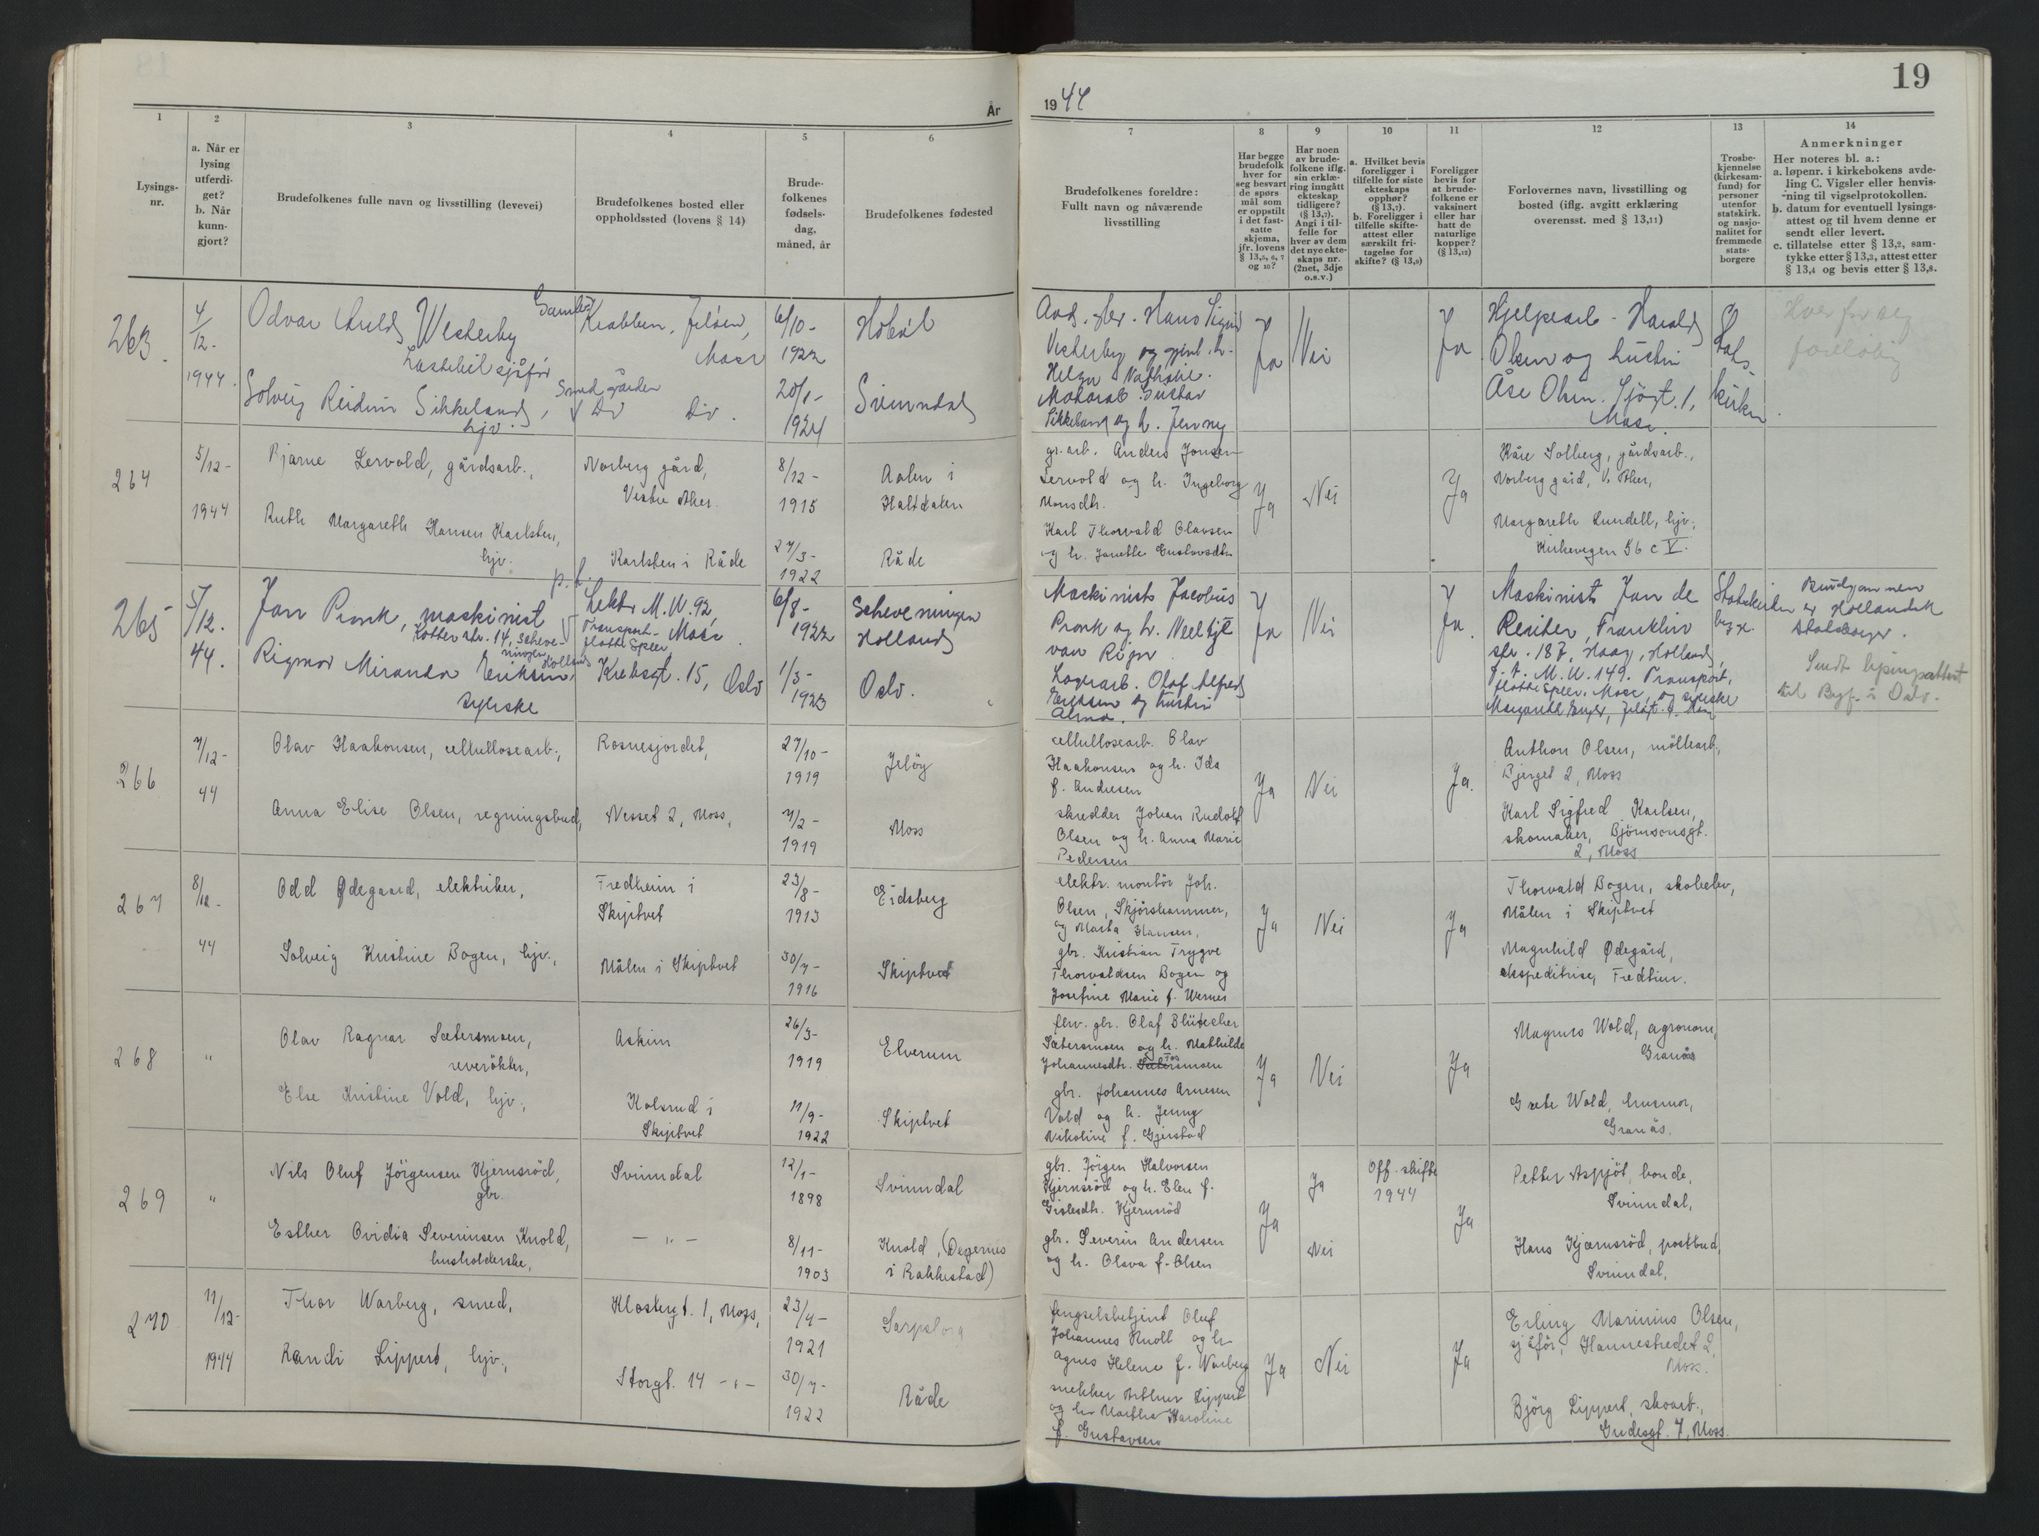 19
År
1944
1
2
3
4
5
6
7
8
9
10
11
12
13
14
Lysings-
nr.
a. Når er
lysing
utferdi-
get?
b. Når
kunn-
gjort?
Brudefolkenes fulle navn og livsstilling (levevei)
Brudefolkenes bosted eller
oppholdssted (lovens § 14)
Brude-
folkenes
fødsels-
dag,
måned, år
Brudefolkenes fødested
Brudefolkenes foreldre:
Fullt navn og nåværende
livsstilling
Har begge
brudefolk
hver for
seg besvart
de spørs
mål som
er oppstilt
i det fast-
satte
skjema,
jfr. lovens
§ 13,5, 6, 7
og 10?
Har noen
av brude-
folkene iflg.
sin erklæ-
ring inngått
ekteskap
tidligere?
(§ 13,7).
Angi i til-
felle for
hver av dem
det nye ekte-
skaps nr.
(2net, 3dje
o.s.v.)
a. Hvilket bevis
foreligger i
tilfelle for siste
ekteskaps
opphør?
(§ 13,7)
b. Foreligger i
tilfelle skifte-
attest eller
særskilt fri-
tagelse for
skifte? (§ 13,9)
Foreligger
bevis for
at brude-
folkene er
vaksinert
eller har
hatt de
naturlige
kopper?
(§ 13,12)
Forlovernes navn, livsstilling og
bosted (iflg. avgitt erklæring
overensst. med § 13,11)
Trosbe-
kjennelse
(kirkesam-
fund) for
personer
utenfor
statskirk.
og nasjo-
nalitet for
fremmede
stats-
borgere
Anmerkninger
Her noteres bl. a.:
a. løpenr. i kirkebokens avde-
ling C. Vigsler eller henvis-
ning til vigselprotokollen.
b. datum for eventuell lysings-
attest og til hvem denne er
sendt eller levert.
c. tillatelse etter § 13,2, sam-
tykke etter § 13,3, attest etter
§ 13,4 og bevis etter § 13,8.
263
4/12-
1944.
Odvar Westerby
Lastebilsjåfør
Krabben, Jeløen,
Moss
6/10-
1922
Hobøl
Solveig Reidun Sikkeland,
hjv.
Smedgården
Do Do.
20/1-
1924
Svinndal
Hans Sigurd
Vesterby og
Helga Nathalie.
Gustav
Sikkeland og h. Jenny
Ja
Nei
Ja
Hjelpearb. Harald
Olsen og hustru
Åse Olsen. Sjøgt. 1,
Moss.
Stats-
kirken.
Hver for seg
foreløbig
264
5/12-
1944
Bjarne Lervold, gårdsarb.,
Norberg gård,
Vestre Aker.
8/12-
1915
Aalen i
Haltdalen
Ruth Margareth Hansen Karlsten,
hjv.
Karlsten i Råde
27/3-
1922
Råde
gr. arb. Anders Jonsen
Lervold og h. Ingeborg
Monsdtr.
Karl Thorvald Olavsen
og h. Janette Gustavsdtr.
Ja
Nei
Ja
Kåre Solberg, gårdsarb.,
Norberg gård, V. Aker,
Margareth Lundell, hjv.,
Kirkevegen 56 c V.
265
5/12.
44.
Jan Pronk, maskinist
Kotter str. 14, Scheve-
ningen Holland
p. t.
Lektr M.W. 92,
Transport-
flotte Speer
Moss.
6/8-
1922
Scheveningen
Holland
Rigmor Miranda Eriksen,
syerske
Krebsgt. 15, Oslo
1/3-
1923
Oslo.
Maskinist Jacobus
Pronk og h. Neeltje
van Rijn
Lagerarb. Olaf Alfred
Eriksen og hustru
Alma.
Ja
Nei
Ja.
Maskinist Jan de
Reuiter, Franklin
str. 187, Haag, Holland,
p. t. M.W. 149. Transport,
flotte Speer, Moss, og syerske
Margareth
Statskirken
begge.
Brudgommen
er Hollandsk
statsborger.
Sendt lysingsattest
til Byf. i Oslo.
266
7/12-
44
Olav Haakonsen, cellullosearb.,
Rosnesjordet,
27/10-
1919
Jeløy
Anna Elise Olsen, regningsbud,
Nesset 2, Moss,
7/2-
1919
Moss
cellullosearb. Olav
Haakonsen og h. Ida
f. Andresen
skredder Johan Rudolf
Olsen og h. Anna Marie
Pedersen
Ja
Nei
Ja.
Anthon Olsen, möllearb.,
Bjerget 2, Moss
Karl Sigfred Karlsen,
skomaker, Björnsonsgt.
2, Moss
267
8/12-
44
Odd Ødegaard, elektriker,
Fredheim i
Skiptvet
23/8-
1913
Eidsberg
Solveig Kristine Bogen, hjv.,
Målen i Skiptvet
30/7-
1916
Skiptvet
elektr. montör Joh.
Olsen, Skjörshammer,
og Marta Hansen,
gbr. Kristian Trygve
Thorvaldsen Bogen og
Josefine Marie f. Wernes
Ja
Nei
Ja
Thorvald Bogen, skoleelev,
Målen i Skiptvet
Magnhild Ødegård,
ekspeditrise, Fredheim.
268
"
Olav Ragnar Sætersmoen,
reverökter,
Askim
26/3-
1919
Elverum
Else Kristine Vold, hjv.,
Kolsrud i
Skiptvet
11/9-
1922
Skiptvet
fhv. gbr. Olaf Blütecher
Sætersmoen og h. Mathilde
Johannesdtr. Sætersmoen
gbr. Johannes Arnesen
Vold og h. Jenny
Nikoline f. Gjerstad
Ja
Nei
Ja
Magnus Wold, agronom,
Granås
Grete Wold, husmor,
Granås.
269
"
Nils Oluf Jörgensen Kjernsröd,
gbr.
Svinndal
12/1-
1898
Svinndal
Esther Ovidia Severinsen Knold,
husholderske,
— " —
8/11-
1903
Knold, (Degernes
i Rakkestad)
gbr. Jörgen Halvorsen
Kjernsröd og h. Elen f.
Gislesdtr. Kjernsröd
gbr. Severin Andersen
og h. Olava f. Olsen
Ja
Ja
Nei
Off. skifte
1944
Ja
Petter Aspjöt, bonde,
Svinndal,
Hans Kjærnsröd, postbud,
Svinndal,
270
11/12-
1944
Thor Warberg, smed,
Klostergt. 1, Moss,
23/4-
1921
Sarpsborg
Randi Lippert, hjv.,
Storgt. 14 - " -
30/7-
1922
Råde
fengselsbetjent Oluf
Johannes Knoll og h.
Agnes Helene f. Warberg
snekker Arthur Lippert
og h. Martha Karoline
f. Gustavsen
Ja
Nei
Ja
Erling Marinius Olsen,
sjåför, Hannestredet 2,
Moss.
Björg Lippert, skoarb.,
Gudesgt. 7, Moss